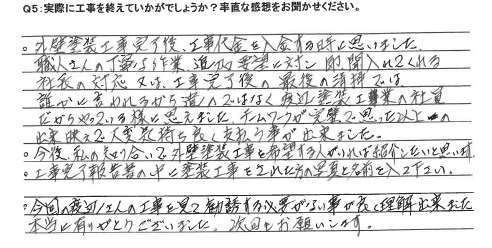 Q5:実際に工事を終えていかがでしょうか？率直な感想をお聞かせください。
○外壁塗装工事完了後、工事代金を入金する時に思いました。
職人さんの丁寧な作業、追加要望に対し即聞入れてくれる
社長の対応 又は、工事完了後の最後の清掃では
誰かに言われるから造のではなく渡辺塗装工事業の社員
だからやっている様に思えました。チームワークが完璧で思った以上の
出来映えで大変気持ち良く支払う事が出来ました。
○今後、私の知り合いで外壁塗装工事を希望する人がいれば紹介したいと思います。
○工事完了報告書の中に塗装工事をされた方の写真と名前を入れて下さい。
○今回の渡辺さんの工事を見て勧誘する必要がない事が良く理解出来ました
本当に有りがとうございました。次回もお願いします。